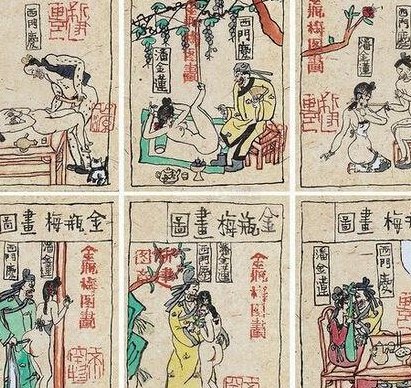 西門慶
西門慶
金瓶梅图畫
潘金蓮
西門慶
金瓶梅图畫
潘金蓮
金瓶梅畫圖
潘金蓮
西門慶
金瓶梅图畫
金瓶梅畫圖
潘金蓮
西門慶
金瓶梅图畫
梅畫圖
西門慶
潘金蓮